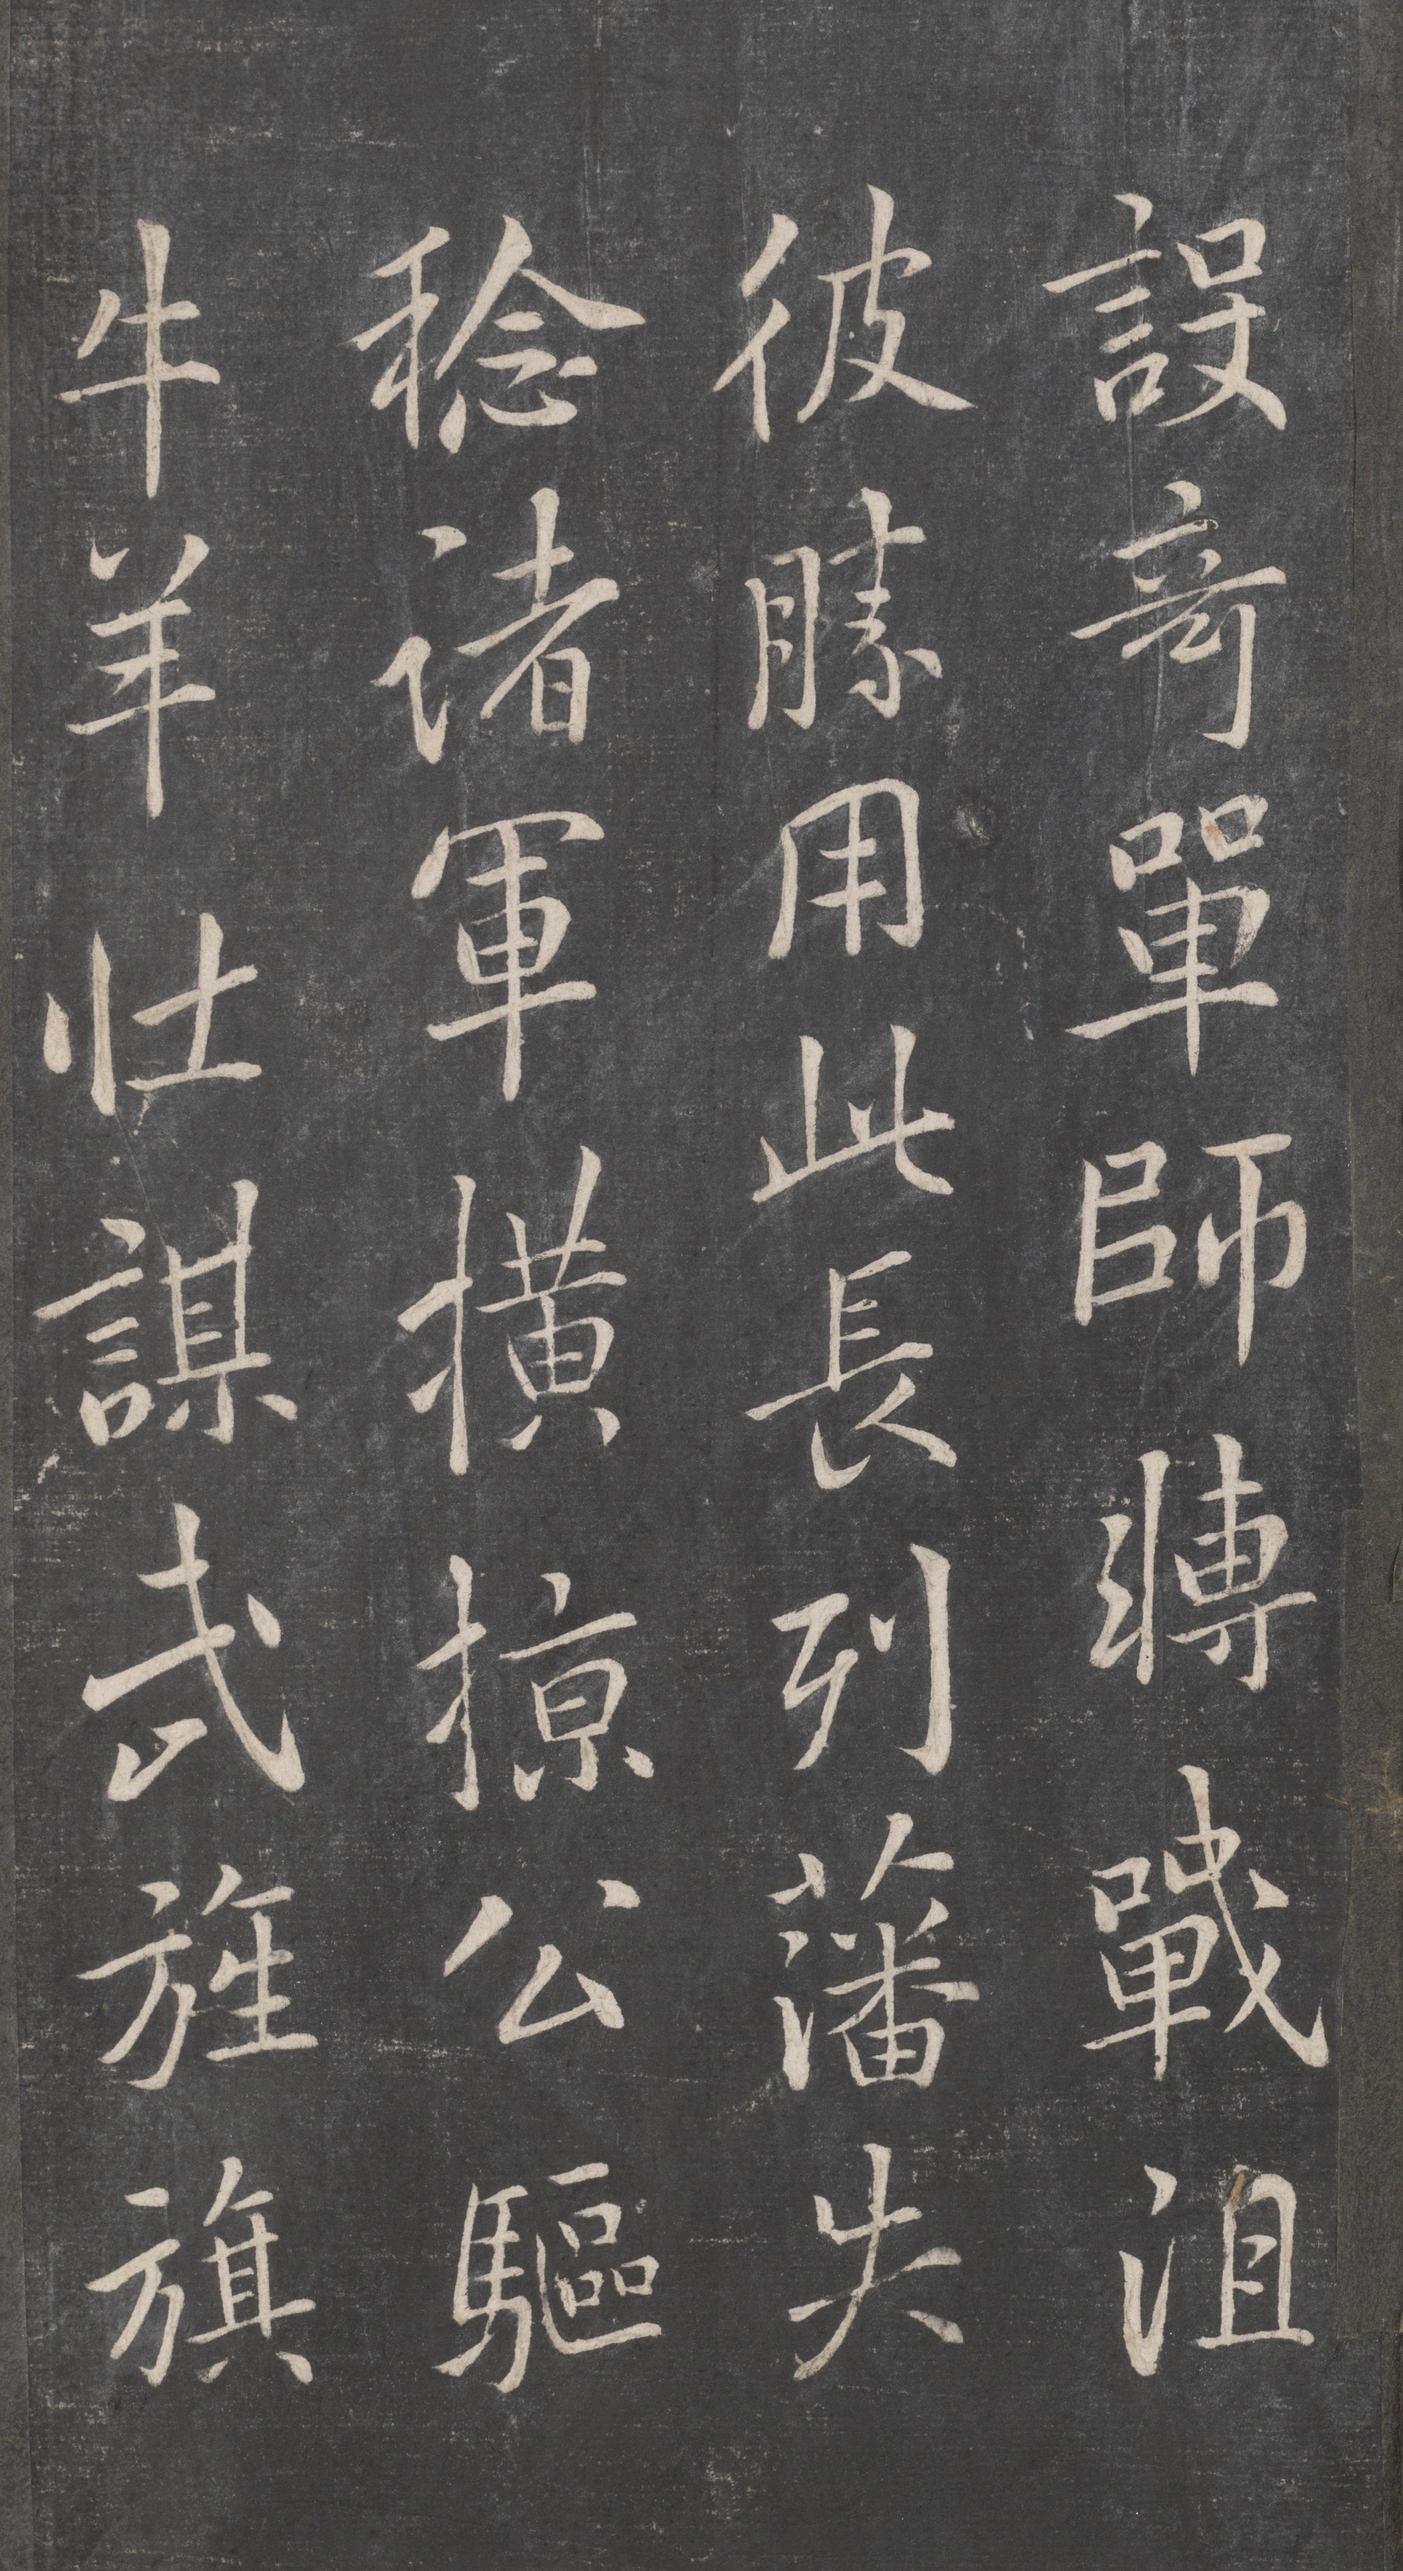 設奇單師將戰沮
彼勝用此長列藩失
稔諸軍橫掠公驅
牛羊壯謀武旌旗